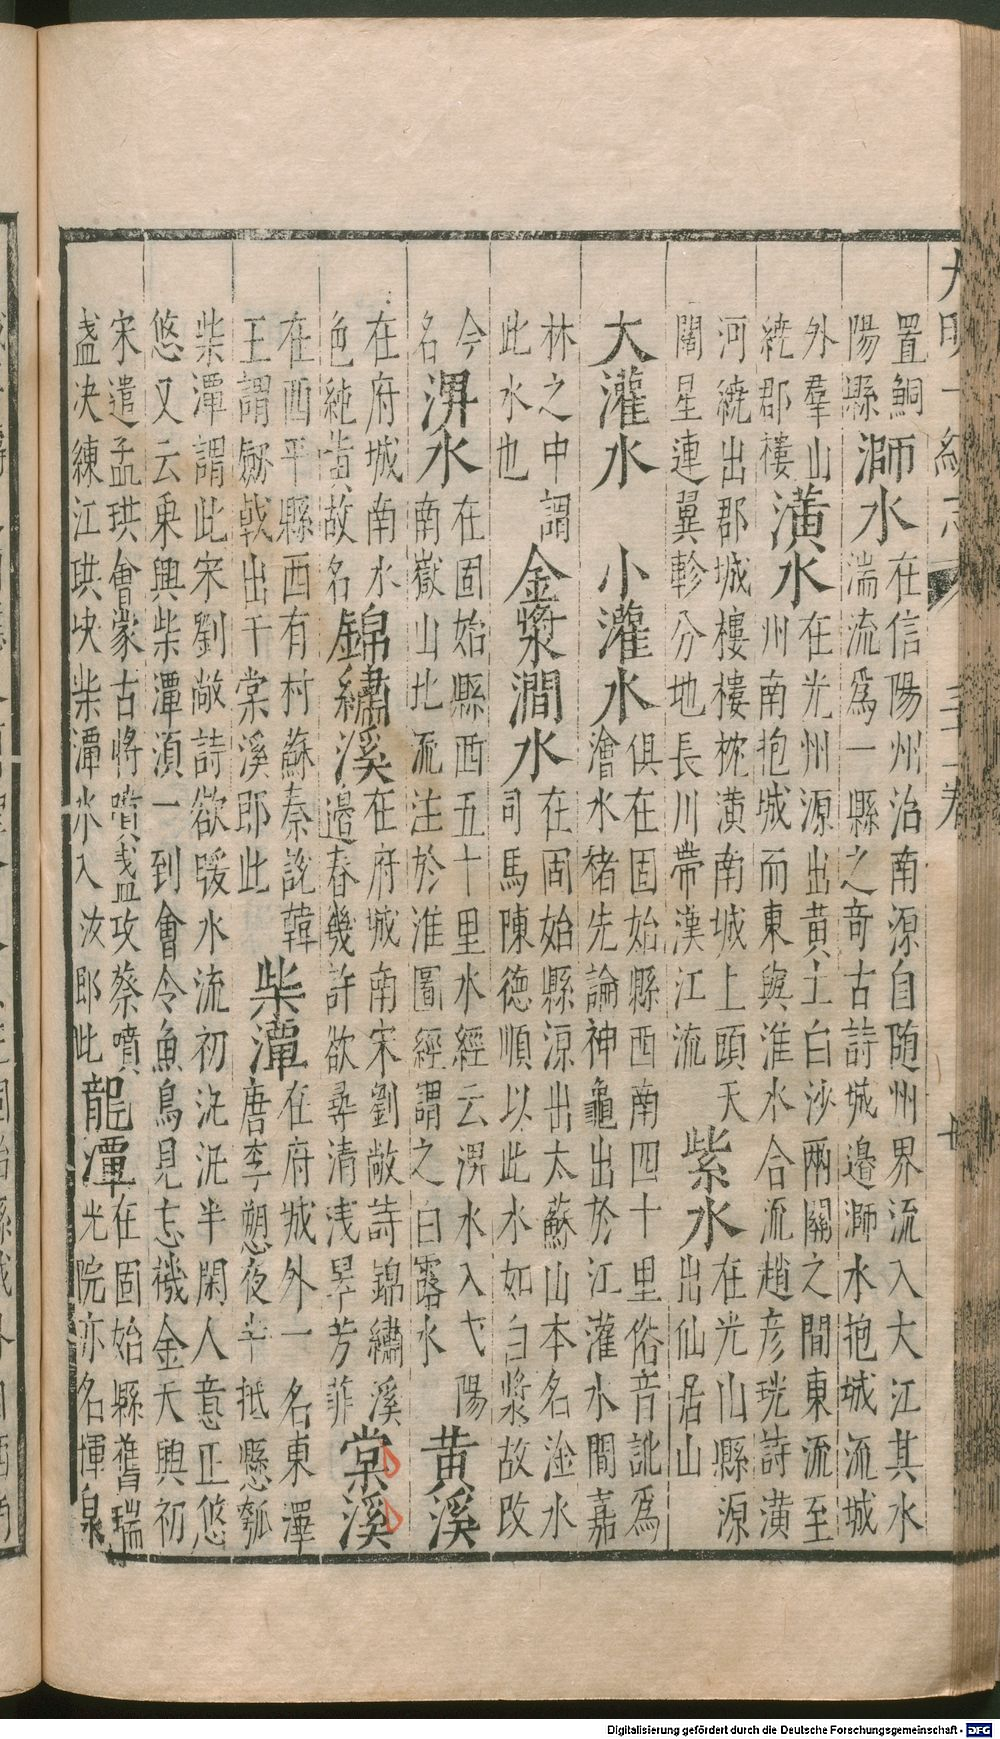 大明一統志 三十一卷 十
置鮦陽縣
溮水
在信陽州治南源自隨州界流入大江其水
湍流爲一縣之奇古詩城邉溮水抱城流城
外羣山繞郡樓
潢水
在光州源出黄土白沙兩關之間東流至
州南抱城而東與淮水合流趙彦珖詩潢
河繞出郡城樓樓枕潢南城上頭天
闊星連翼軫分地長川帶漢江流
紫水
在光山縣源
出仙居山
大灌水 小灌水
俱在固始縣西南四十里俗音訛爲
澮水褚先論神龜出於江灌水間嘉
林之中謂
此水也
金漿澗水
在固始縣源出太蘇山本名淦水
司馬陳德順以此水如白漿故改
今名
淠水
在固始縣西五十里水經云淠水入弋陽
南嶽山北流注於淮圖經謂之白露水
黄溪
在府城南水
色純黄故名
錦繡溪
在府城南宋劉敞詩錦繡溪
邉春幾許欲尋清浅弄芳菲
棠溪
在西平縣西有村蘇秦說韓
王謂劒戟出于棠溪郎此
柴潭
在府城外一名東潭
唐李愬夜半抵懸瓠
柴潭謂此宋劉敞詩欲暖水流初浼浼半閑人意正悠
悠又云乘興柴潭湏一到會令魚鳥見忘機金天興初
宋遣孟珙會蒙古將噴盞攻蔡噴
盞决練江珙决柴潭水入汝郎此
龍潭
在固始縣舊瑞
光院亦名惲泉
Digitalisierung gefördert durch die Deutsche Forschungsgemeinschaft - DFG